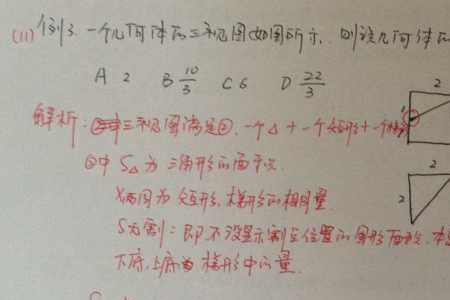 (11) 例3. 一个几何体的三视图如图所示. 则该几何体的
A 2 B 10/3 C 6 D 22/3
解析: 三视图满足②. 一个△ + 一个矩形 + 一个梯
②中 S△ 为 三角形的面积.
为 矩形. 梯形的相同量
S为割: 即不设显示割去位置的图形面积.
下底. 上底为 梯形中的量.
2
1
2
2